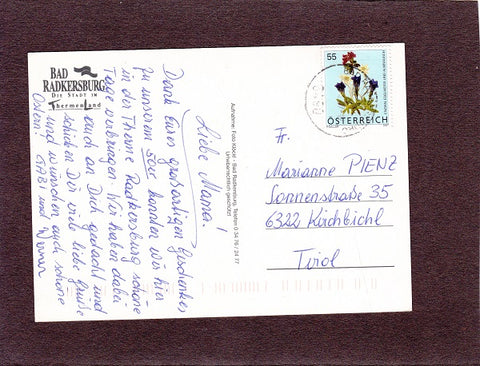 BAD
RADKERSBURG
DIE STADT IM
ThermenLand
Liebe Mama!
Dank Eures großartigen Geschenkes
zu unserem 50er konnten wir hier
in der Therme Radkersburg schöne
Tage verbringen. Wir haben dabei
auch an Dich gedacht und
schicken Dir viele liebe Grüße
und wünschen auch schöne
Ostern: GABI und
Aufnahme: Foto - Bad Radkersburg, Telefon 0 34 76 / 24 77
Urheberrechtlich geschützt!
55
ÖSTERREICH
Fr.
Marianne PIENZ
Sonnenstraße 35
6322 Kirchbichl
Tirol